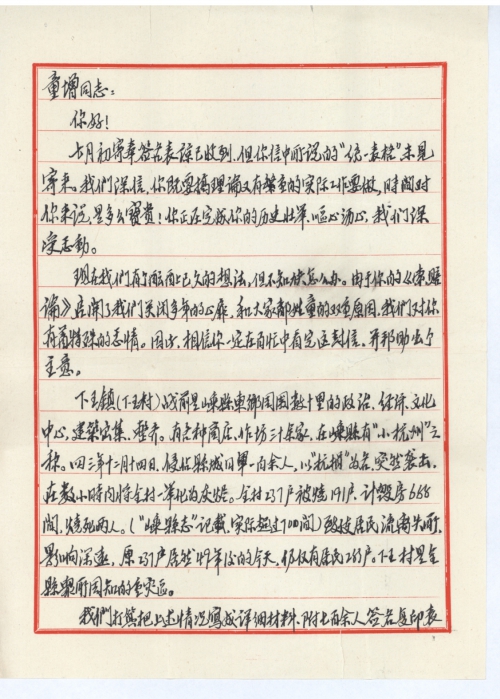 童增同志：
你好！
七月初寄奉签名表谅已收到，但你信中所说的“统一表格”未见
寄来。我们深信，你既要搞理论又有繁重的实际工作要做，时间对
你来说，是多么宝贵！你正在完成你的历史壮举，呕心沥血，我们深
受感动。
现在我们有个酝酿已久的想法，但不知怎么办。由于你的《索赔
论》启开了我们关闭多年的心扉，和大家都姓童的双重原因，我们对你
有着特殊的感情。因此，相信你一定在百忙中看完这封信，并帮助出个
主意。
下王镇(下王村)战前是嵊县东乡周围数十里的政治、经济、文化
中心，建筑密集、整齐。有各种商店、作坊三十余家，在嵊县有“小杭州”之
称。四三年十二月十四日，侵驻县城日军一百余人，以“抗捐”为名，突然袭击，
在数小时内将全村一举化为灰烬。全村237户被烧191户，计毁房668
间，烧死两人。(“嵊县志”记载，实际超过700间)致使居民流离失所，
影响深远，原237户居然49年后的今天，仍仅有居民235户。下王村是全
县众所周知的重灾区。
我们打算把上述情况写成详细材料、附七百余人签名复印表